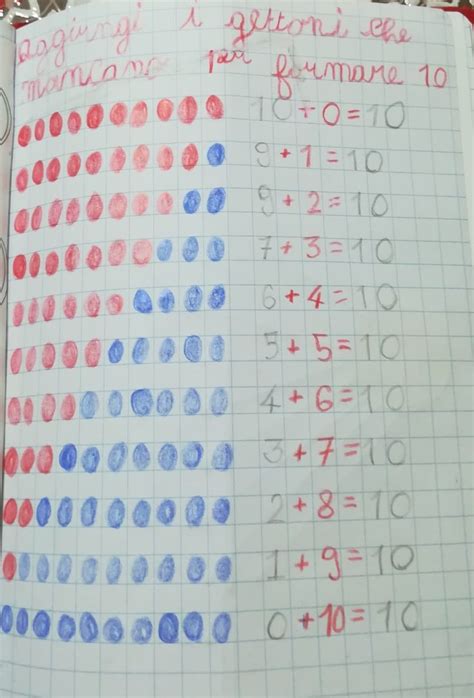 aggiungi i gettoni che
mancano per formare 10
10+0=10
9+1=10
9+2=10
7+3=10
6+4=10
5+5=10
4+6=10
3+7=10
2+8=10
1+9=10
0+10=10